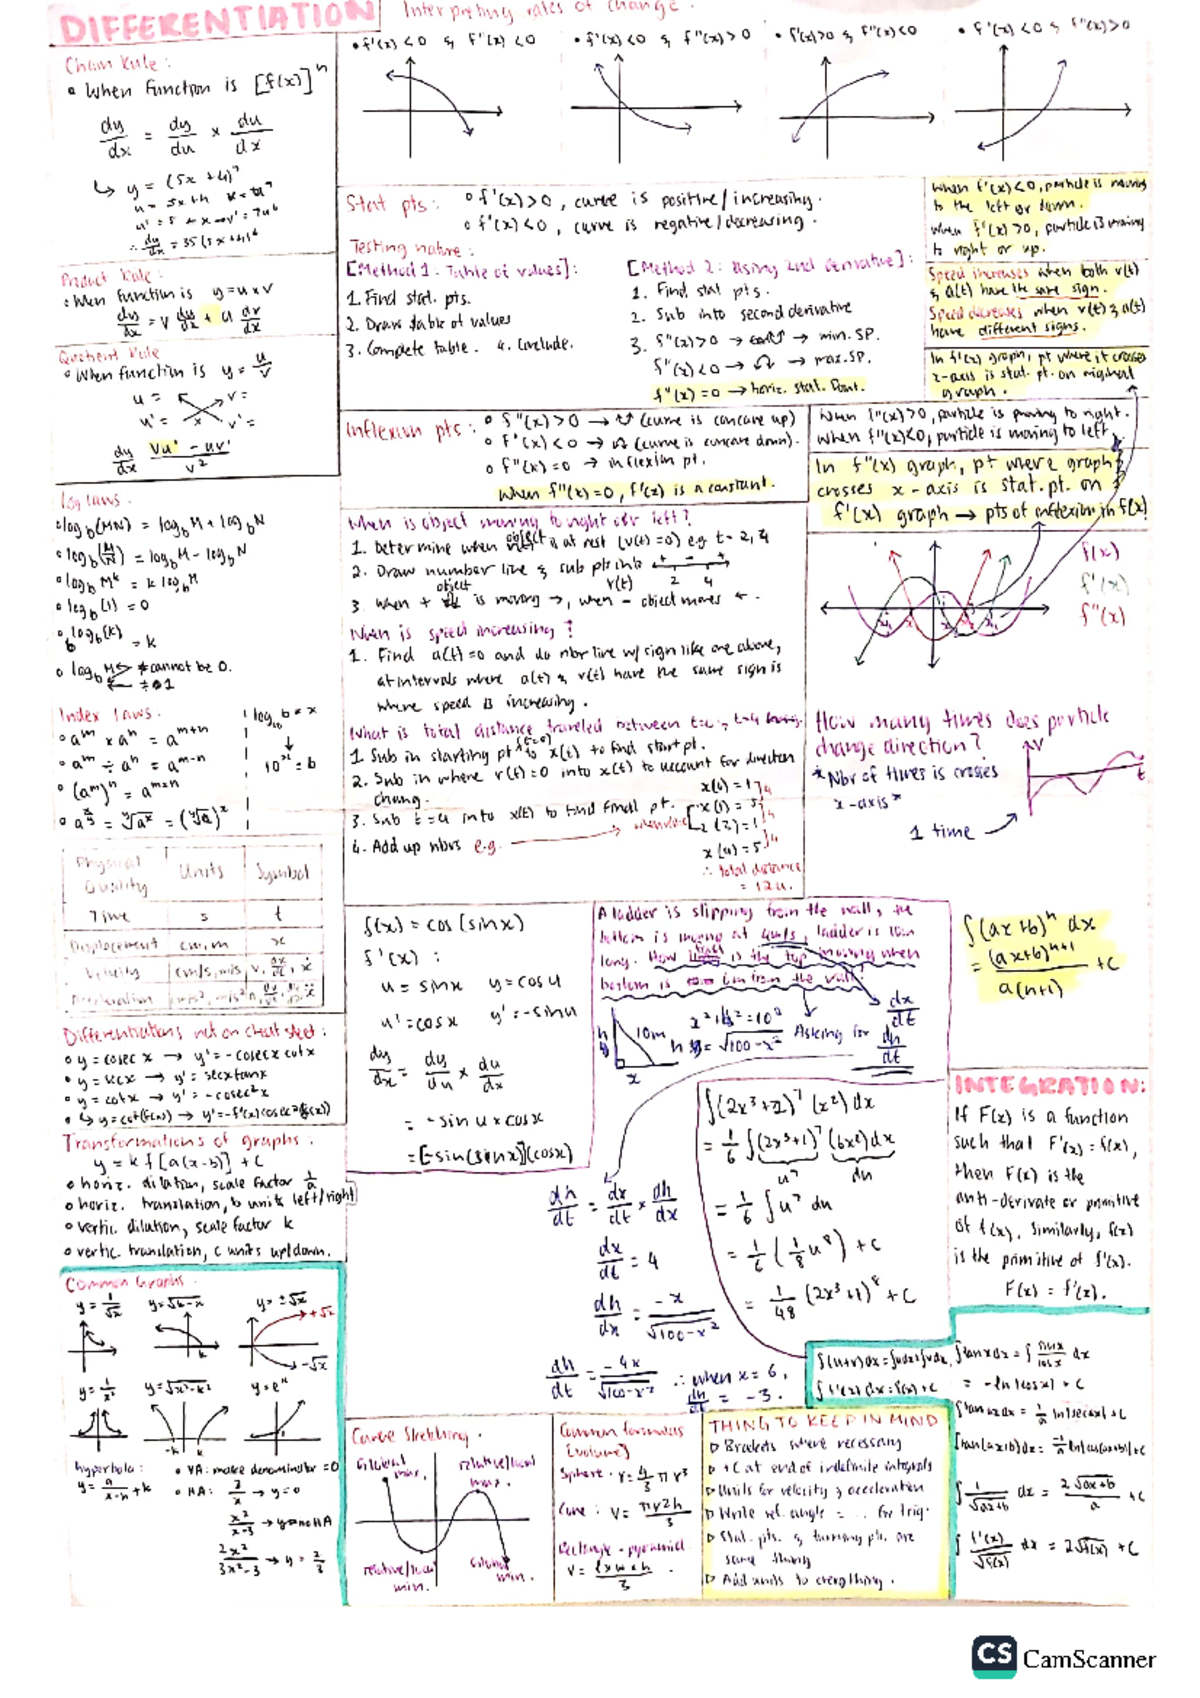 DIFFERENTIATION
Interpreting rates of change.
Chain Rule:
• When function is [f(x)]ⁿ
dy/dx = dy/du × du/dx
↳ y = (5x + 4)⁷
∴ dy/dx = 35(5x+4)⁶
Product Rule:
• When function is y = u × v
dy/dx = v du/dx + u dv/dx
Quotient Rule
• When function is y = u/v
u = v =
u' = v' =
dy/dx vu' - uv' / v²
log laws.
• log_b(MN) = log_b M + log_b N
• log_b(M/N) = log_b M - log_b N
• log_b M^k = k log_b M
• log_b(1) = 0
• b^log_b(k) = k
cannot be 0.
Index laws:
• aᵐ × aⁿ = aᵐ⁺ⁿ
• aᵐ ÷ aⁿ = aᵐ⁻ⁿ
Physical Quality Units Symbol
Time s t
Displacement cm, m x
Velocity cm/s, m/s
Differentiations not on cheat sheet:
• y = cosec x → y' = -cosecx cotx
• y = secx → y' = secxtanx
• y = cotx → y' = -cosec²x
Transformations of graphs.
y = k f[a(x-b)] + c
• horiz. dilation, scale factor 1/a
• horiz. translation, b units left/right
• vertic. dilution, scale factor k
• vertic. translation, c units up/down.
Common Graphs.
y = 1/√x y = √(k-x) y = ±√x
+√x
-√x
y = 1/x² y = √(x²-k²) y = eˣ
hyperbola:
y = a/(x-h) + k
• VA: make denominator = 0
• HA: 2/x → y = 0
x²/(x-3) → y = no HA
2x²/(3x²-3) → y = 2/3
• f'(x) < 0 & f"(x) < 0
• f'(x) < 0 & f"(x) > 0
• f'(x) > 0 & f"(x) < 0
• f'(x) < 0 & f"(x) > 0
Stat pts:
• f'(x) > 0, curve is positive/increasing.
• f'(x) < 0, curve is negative/decreasing.
Testing nature:
[Method 1: Table of values]:
1. Find stat. pts.
2. Draw table of values
3. Complete table. 4. Conclude.
[Method 2: Using 2nd derivative]:
1. Find stat pts.
2. Sub into second derivative
3. f"(x) > 0 → → min. SP.
f"(x) < 0 → → max. SP.
f"(x) = 0 → horiz. stat. point.
When f'(x) < 0, particle is moving
to the left or down.
When f'(x) > 0, particle is moving
to right or up.
Speed increases when both v(t)
& a(t) have the same sign.
Speed decreases when v(t) & a(t)
have different signs.
In f'(x) graph, pt where it crosses
x-axis is stat. pt. on original
graph.
Inflexion pts:
• f"(x) > 0 → (curve is concave up)
• f"(x) < 0 → (curve is concave down).
• f"(x) = 0 → inflexion pt.
When f"(x) = 0, f'(x) is a constant.
When f"(x) > 0, particle is moving to right.
When f"(x) < 0, particle is moving to left.
In f"(x) graph, pt where graph
crosses x-axis is stat. pt. on
f'(x) graph → pts of inflexion in f(x)
When is object moving to right or left?
1. Determine when object is at rest (v(t) = 0) e.g t = 2, 4
2. Draw number line & sub pts into v(t)
+ - +
2 4
3. When + object is moving →, when - object moves ←.
When is speed increasing?
1. Find a(t) = 0 and do nbr line w/ sign like one above,
at intervals where a(t) & v(t) have the same sign is
where speed is increasing.
What is total distance traveled between
1. Sub in starting pt (t=0) to x(t) to find start pt.
2. Sub in where v(t) = 0 into x(t) to account for direction
chang.
3. Sub t = 4 into x(t) to find final pt.
4. Add up nbrs e.g.
∴ total distance
= 12u.
f(x)
f'(x)
f"(x)
How many times does particle
change direction?
*Nbr of times is crosses
x-axis*
1 time
V
t
f(x) = cos(sinx)
f'(x):
u = sinx y = cosu
u' = cosx y' = -sinu
dy/dx = dy/du × du/dx
= -sinu × cosx
= [-sin(sinx)](cosx)
A ladder is slipping from the wall, the
bottom is moving at 4m/s, ladder is 10m
long. How is the top moving when
bottom is 6m from the wall.
10m
x
Asking for dh/dt
dx/dt
dh/dt = dx/dt × dh/dx
dx/dt = 4
dh/dx = -x/√(100-x²)
dh/dt = -4x/√(100-x²) ∴ when x = 6,
dh/dt = -3.
∫(ax+b)ⁿ dx
= (ax+b)ⁿ⁺¹ / a(n+1) + C
∫(2x³+2)⁷ (x²) dx
= 1/6 ∫(2x³+1)⁷ (6x²) dx
u⁷ du
= 1/6 ∫u⁷ du
= 1/6 (1/8 u⁸) + C
= 1/48 (2x³+1)⁸ + C
INTEGRATION:
If F(x) is a function
such that F'(x) = f(x),
then F(x) is the
anti-derivate or primitive
of f(x). Similarly, f(x)
is the primitive of f'(x).
F(x) = f'(x).
∫f'(x) dx = f(x) + C
∫tanx dx = ∫ sinx/cosx dx
= -ln|cosx| + C
∫ 1/√(ax+b) dx = 2√(ax+b)/a + C
∫ f'(x)/√f(x) dx = 2√f(x) + C
Curve Sketching.
Global max.
relative/local max.
relative/local min.
Global min.
Common formulas
[volume]
Sphere: V = 4/3 π r³
Cone: V = πr²h/3
Rectangle-pyramid
V = l×w×h/3
THING TO KEEP IN MIND
▷ Brackets where necessary
▷ +C at end of indefinite integrals
▷ Units for velocity & acceleration
▷ Write ref. angle = ... for trig.
▷ Stat. pts. & turning pts. are
same thing
▷ Add units to everything.
CS CamScanner